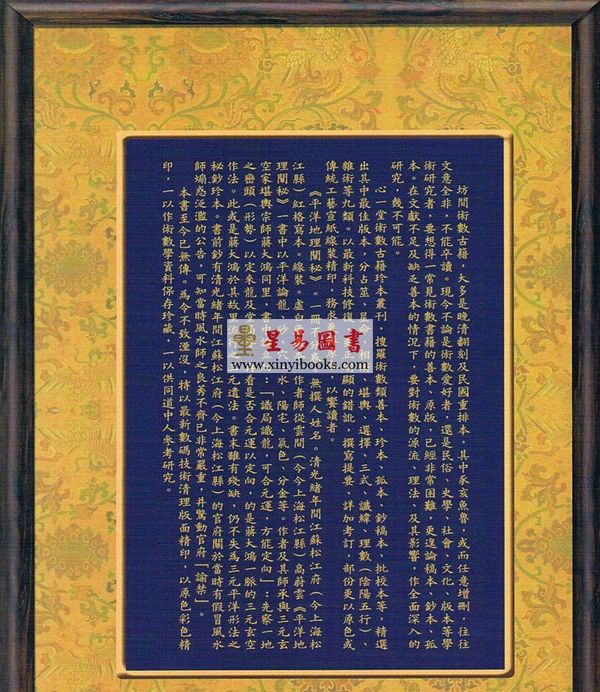 坊間術數古籍，大多是晚清翻刻及民國重排本，其中豕亥魚魯，或而任意增刪，往往
文意全非，不能卒讀。現今不論是術數愛好者，還是民俗、史學、社會、文化、版本等學
術研究者，要想得一常見術數書籍的善本、原版，已經非常困難，更遑論稿本、鈔本、孤
本。在文獻不足及缺乏善本的情況下，要對術數的源流、理法、及其影響，作全面深入的
研究，幾不可能。
心一堂術數古籍珍本叢刊，搜羅術數類善本、珍本、孤本、鈔稿本、批校本等，精選
出其中最佳版本，分占筮、星命、相術、堪輿、選擇、三式、讖緯、理數（陰陽五行）、
雜術等九類。以最新科技修復、更正明顯的錯訛，撰寫提要、詳加考訂，部份更以原色或
傳統工藝宣紙線裝精印，務求更 原 ，以饗讀者。
《平洋地理闡秘》。一冊不分卷。 無撰人姓名。清光緒年間江蘇松江府（今上海松
江縣）紅格寫本。線裝。虛白 作者師從雲間（今上海松江縣）高蔚雲《平洋地
理闡秘》一書中以平洋論龍、砂、穴、水、陽宅、氣色、分金等。作者及其師承與三元玄
空家堪輿宗師蔣大鴻同里，書中 ：「識局識龍，可合元運，方能定向」：先察一地
之巒頭（形勢）以定來龍及堂 看是否合元運以定向，的是蔣大鴻一脈的三元玄空
作法。此或是蔣大鴻於其故里流 之 元遺法。書末雖有殘缺，仍不失為三元平洋形法之
秘鈔珍本。書前鈔有清光緒年間江蘇松江府（今上海松江縣）的官府關於當時有假冒風水
師煽惑泛濫的公告，可知當時風水師之良莠不齊已非常嚴重，并驚動官府「諭禁」。
本書至今已無傳。為令不致湮沒，特以最新數碼技術清理版面精印，以原色彩色精
印，一以作術數學資料保存珍藏，一以供同道中人參考研究。
星易圖書
www.xinyibooks.com